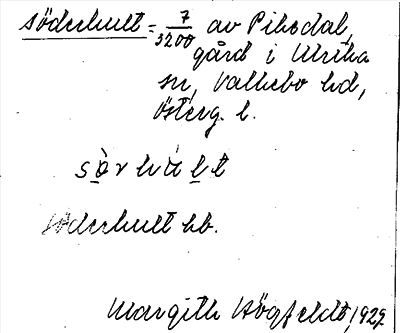 Söderhult = 7/3200 av Piksdal,
gård i Ulrika
sn, Vallebo hd,
Österg. l.
sòrhu̇lt
Söderhult hb.
Margith Högfeldt, 1929.